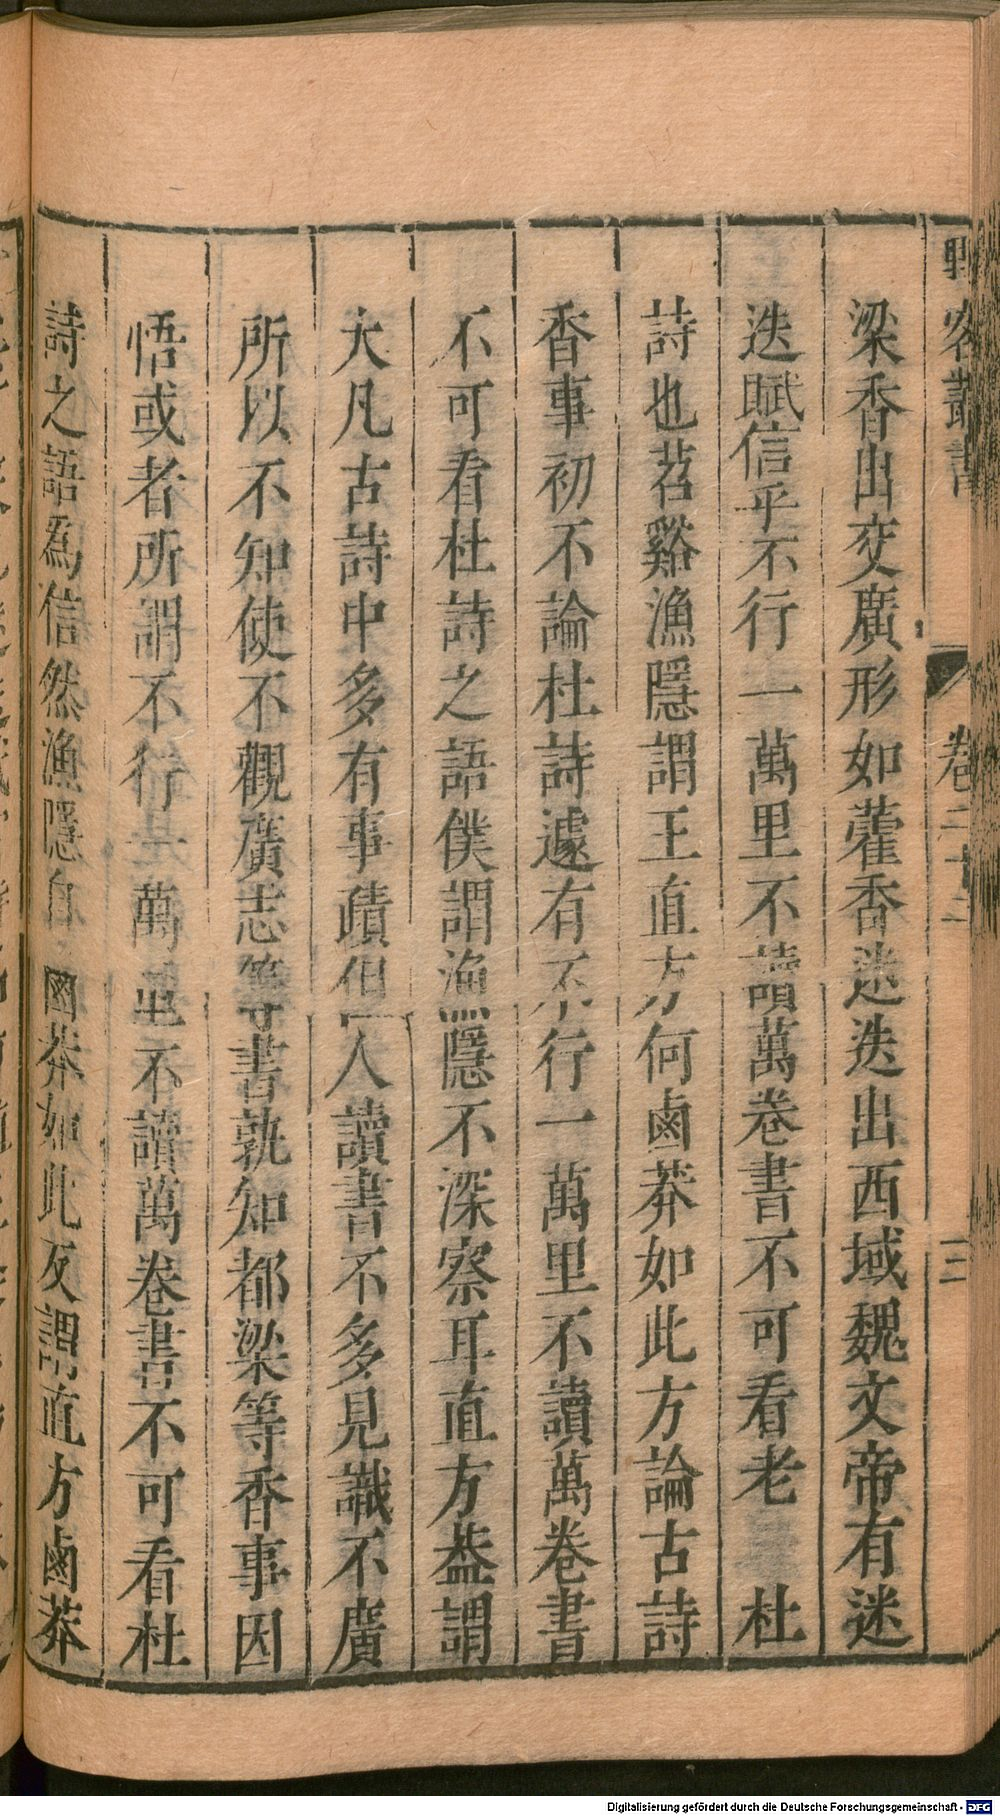 野客叢書 卷二十二 三
梁香出交廣形如藿香迷迭出西域魏文帝有迷
迭賦信乎不行一萬里不讀萬卷書不可看老杜
詩也苕谿漁隱謂王直方何鹵莽如此方論古詩
香事初不論杜詩遽有不行一萬里不讀萬卷書
不可看杜詩之語僕謂漁隱不深察耳直方葢謂
大凡古詩中多有事蹟但人讀書不多見識不廣
所以不知使不觀廣志等書孰知都梁等香事因
悟或者所謂不行萬里不讀萬卷書不可看杜
詩之語爲信然漁隱自鹵莽如此反謂直方鹵莽
Digitalisierung gefördert durch die Deutsche Forschungsgemeinschaft - DFG